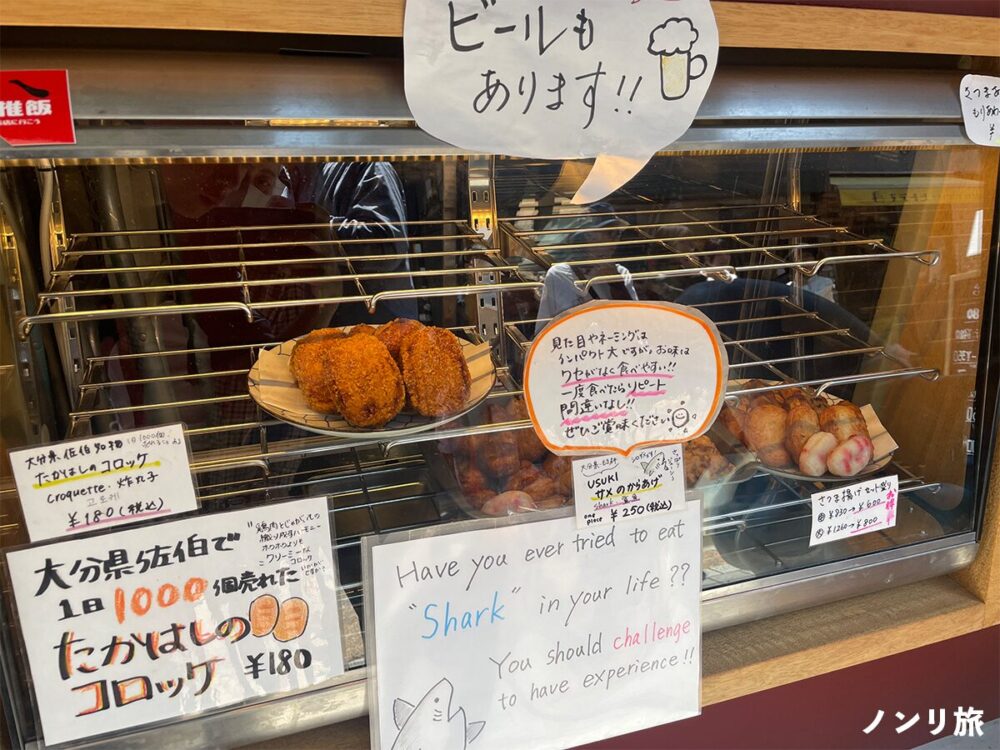 ビールも
あります!!
推飯
さつまあ
もりあわ
見た目やネーミングは
インパクト大ですが、お味は
クセがなく食べやすい!!
一度食べたらリピート
間違いなし!!
ぜひご賞味ください
大分県佐伯名物
たかはしのコロッケ
Croquette・炸丸子
고로케
¥180(税込)
USUKI
サメのからあげ
Shark
one piece ¥250(税込)
さつま揚げセット盛り
¥830→¥600
¥1260→¥800
大分県佐伯で
1日1000個売れた
たかはしの
コロッケ ¥180
クリーミーな
コロッケ
Have you ever tried to eat
"Shark" in your life??
You should challenge
to have experience!!
ノンリ旅